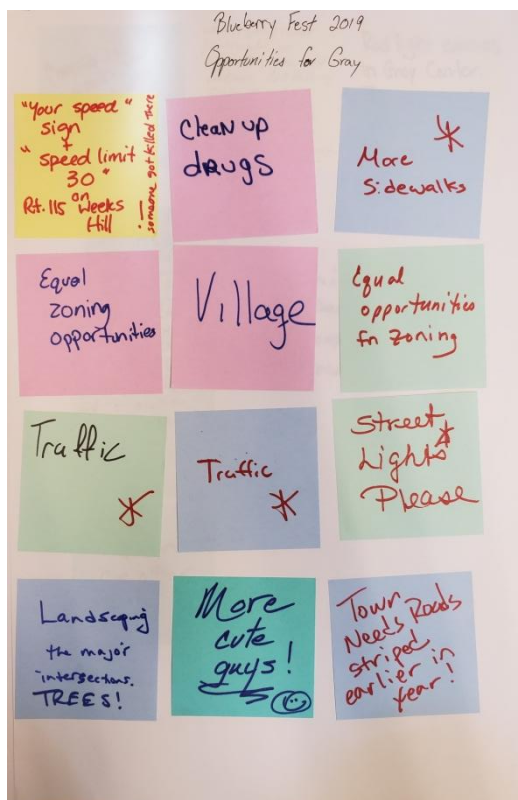 Blueberry Fest 2019
Opportunities for Gray
"Your speed"
sign
+
"speed limit
30"
on
Rt. 115 Weeks
Hill
! someone got killed there
Clean up
drugs
More
Sidewalks
Equal
zoning
opportunities
Village
Equal
opportunities
fn zoning
Traffic
Traffic
Street
Lights
Please
Landscaping
the major
intersections.
TREES!
More
cute
guys!
Town
Needs Roads
striped
earlier in
year!